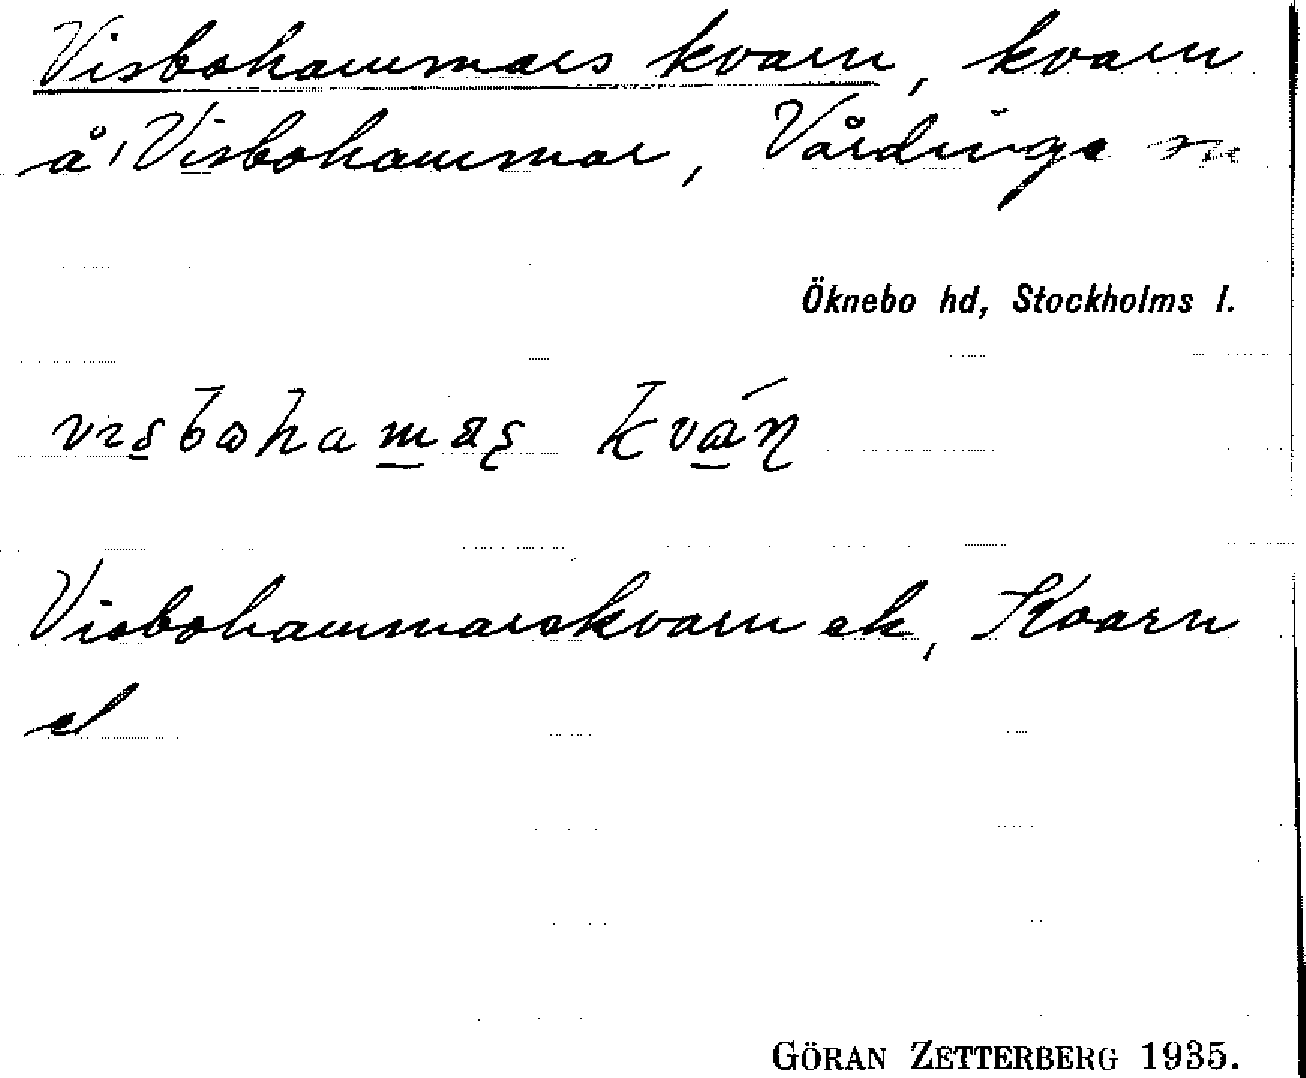 Visbohammars kvarn, kvarn
å Visbohammar, Vårdinge sn
Öknebo hd, Stockholms l.
Visbohammarskvarn ek, Kvarn
el
GÖRAN ZETTERBERG 1935.